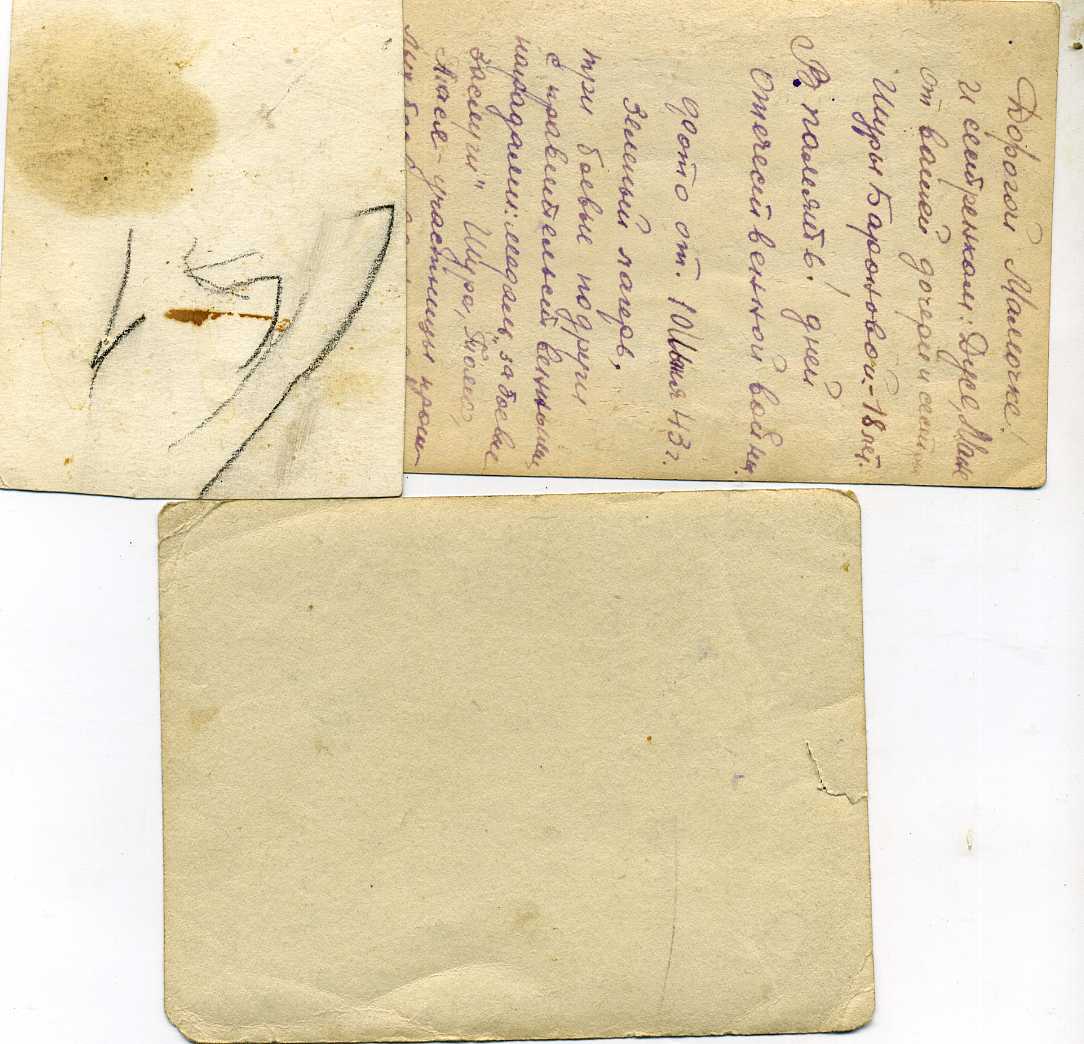 Дорогой Мамочке!
И сестренкам: Дусе, Мане
от вашей дочери и сестры
Шуры Бароновой - 18 лет.
В память! дней
Отечественной войны
фото от 10 июля 43 г.
Зеленый лагерь,
три боевые подруги
с правительственными
наградами: медаль „за боевые
заслуги" Шура, Тося,
Ася - участницы